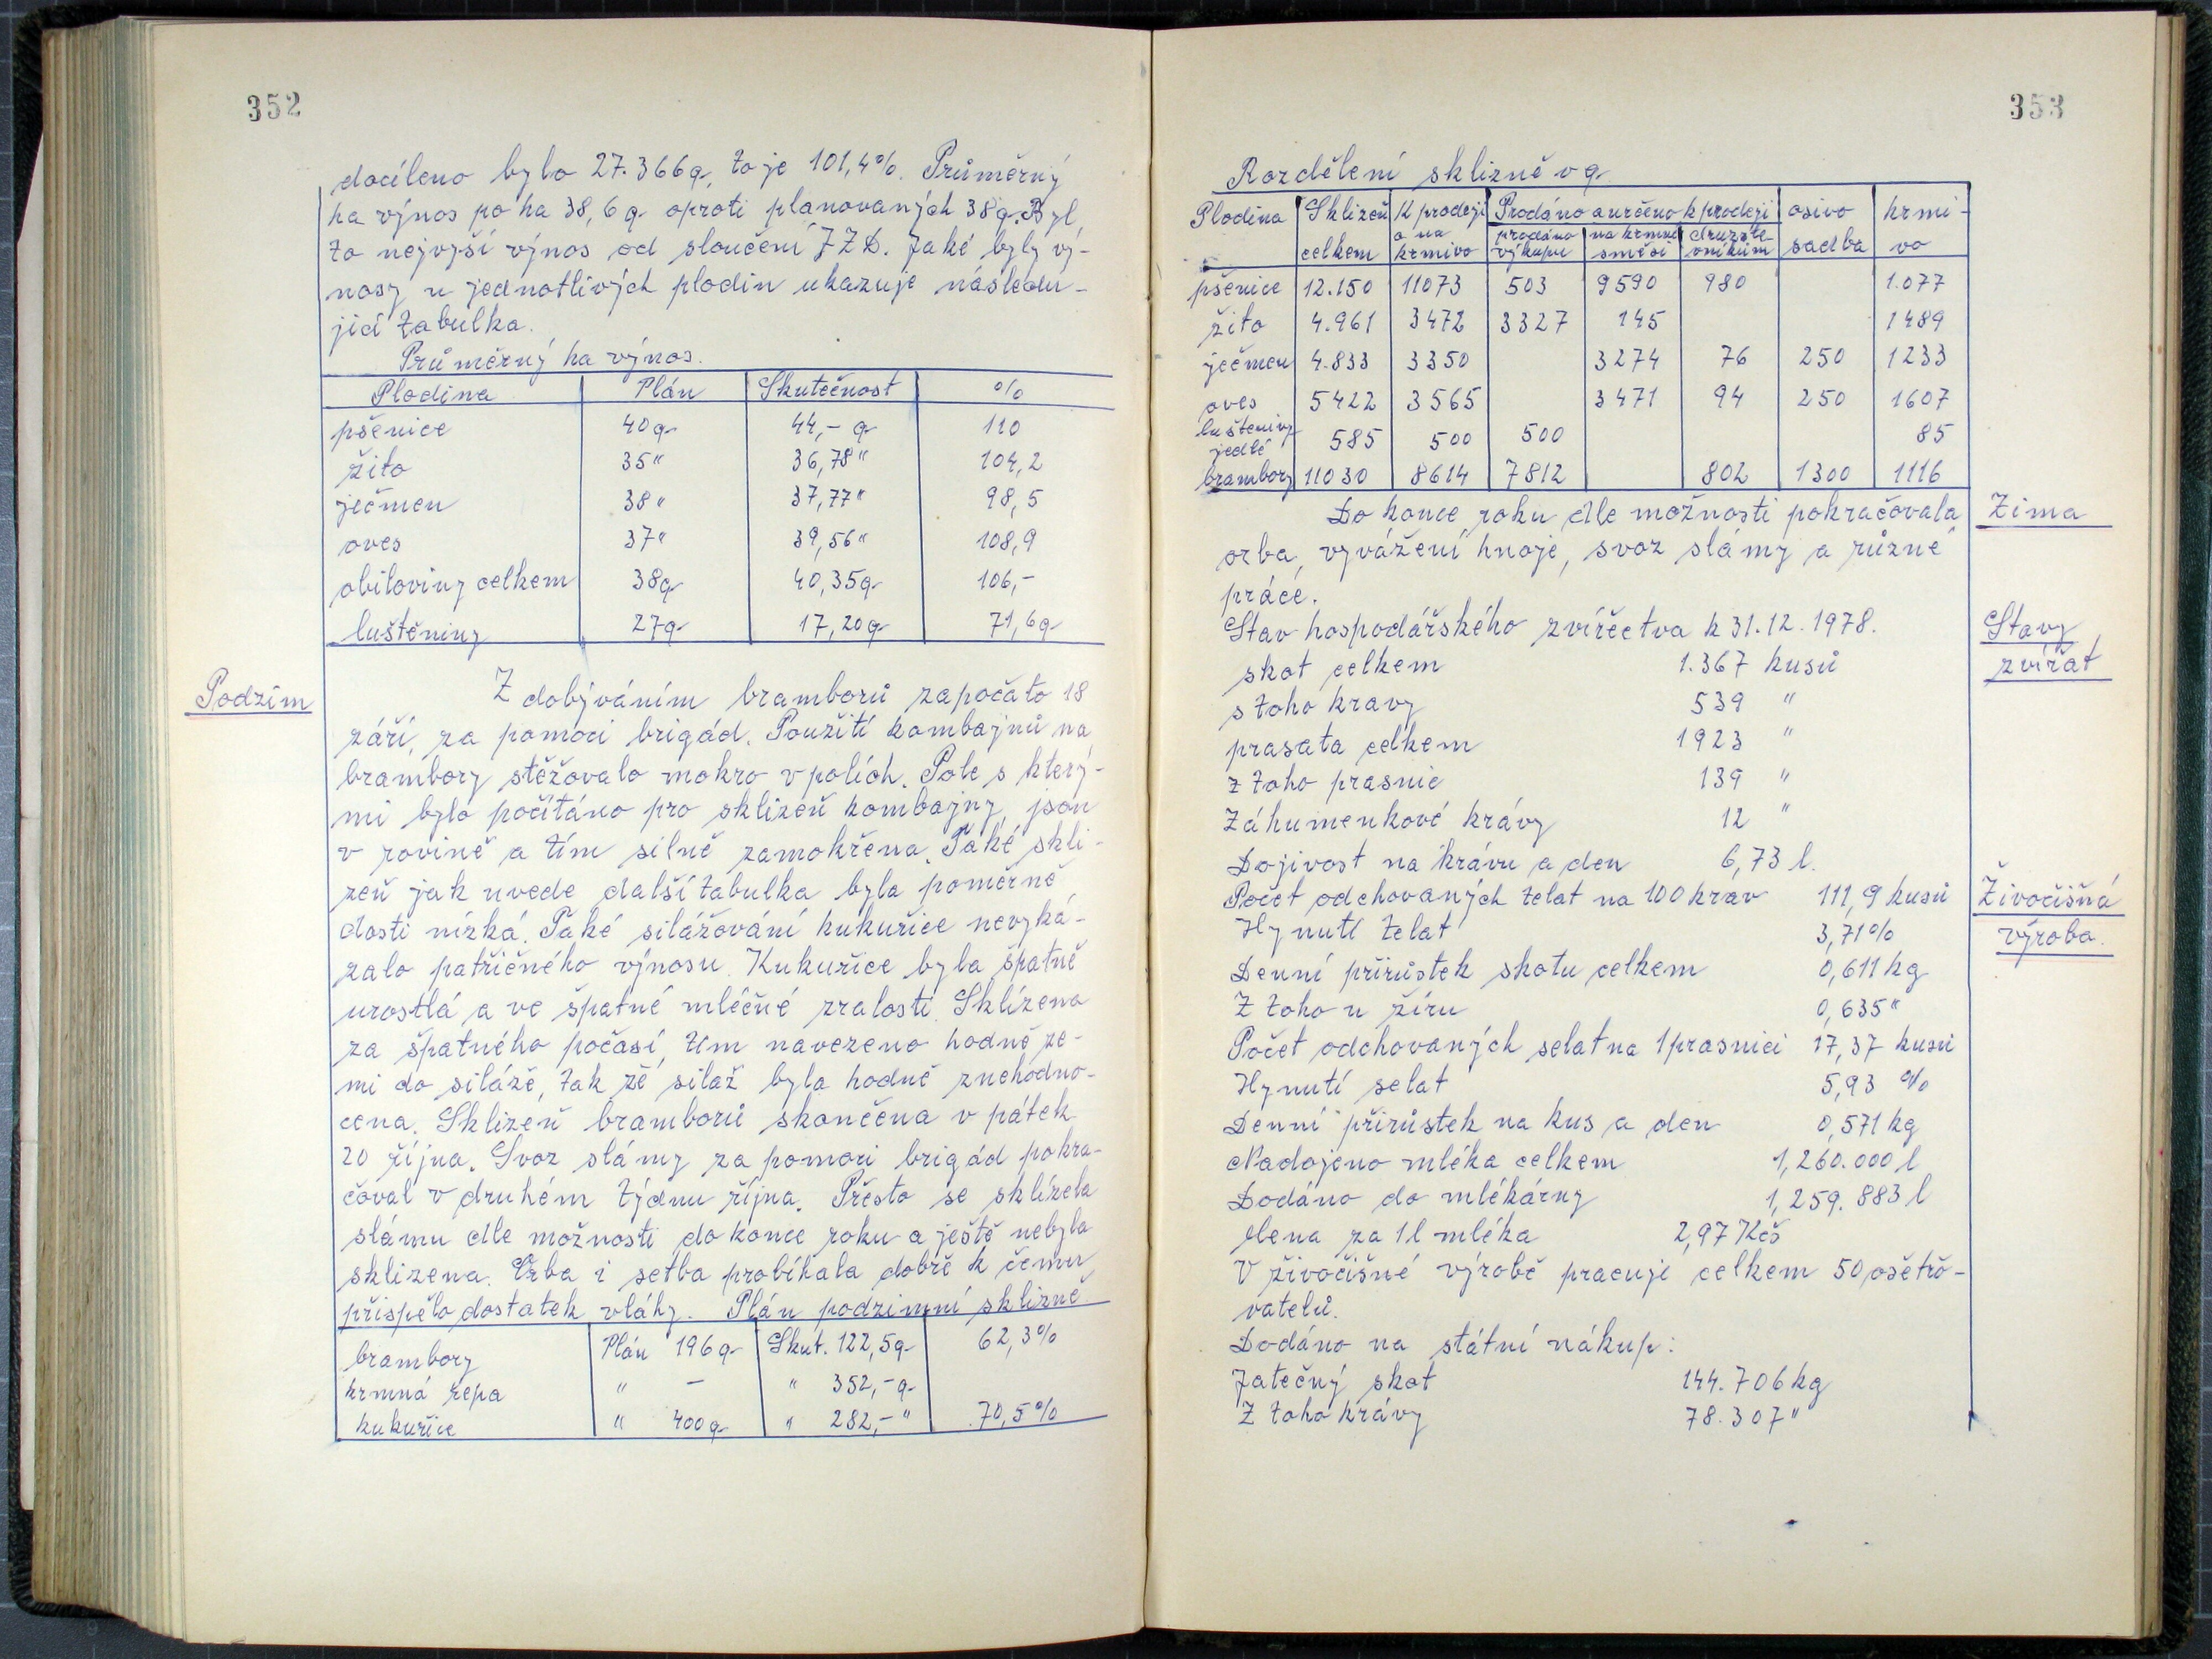 352
docíleno bylo 27.366q, to je 101,4%. Průměrný
ha výnos po ha 38,6q oproti planovaných 38q. Byl
to nejvyší výnos od sloučení JZD. Jaké byly vý-
nosy u jednotlivých plodin ukazuje následu-
jicí tabulka.
Průměrný ha výnos.
Plodina Plán Skutečnost %
pšenice 40q 44,- q 110
žito 35" 36,78" 104,2
ječmen 38" 37,77" 98,5
oves 37" 39,56" 108,9
obiloviny celkem 38q 40,35q 106,-
luštěniny 27q 17,20q 71,6q
Podzim
Z dobýváním bramborů započato 18
září, za pomoci brigád. Použití kombajnů na
brambory stěžovalo mokro v polích. Pole s který-
mi bylo počítáno pro sklizeň kombajny, jsou
v rovině a tím silně zamokřena. Také skli-
zeň jak uvede další tabulka byla poměrně
dosti nízká. Také silážování kukuřice nevyká-
zalo patřičného výnosu. Kukuřice byla špatně
urostlá a ve špatné mléčné zralosti. Sklízena
za špatného počasí, tím navezeno hodně ze-
mi do siláže, tak že siláž byla hodně znehodno-
cena. Sklizeň bramborů skončena v pátek
20 října. Svoz slámy za pomoci brigád pokra-
čoval v druhém týdnu října. Přesto se sklízela
slámu dle možnosti do konce roku a ještě nebyla
sklizena. Orba i setba probíhala dobře k čemu
přispělo dostatek vláhy. Plán podzimní sklizně
brambory Plán 196q Skut. 122,5q 62,3%
krmná řepa " - " 352,-q
kukuřice " 400q " 282,-" 70,5%
353
Rozdělení sklizně v q
Plodina Sklizeň celkem K prodeji a na krmivo Prodáno a určeno k prodeji osivo sadba krmi-vo
prodáno výkupu na krmné směsi družste-vníkům
pšenice 12.150 11073 503 9590 980 1.077
žito 4.961 3472 3327 145 1489
ječmen 4.833 3350 3274 76 250 1233
oves 5422 3565 3471 94 250 1607
lušteniny jedlé 585 500 500 85
brambory 11030 8614 7812 802 1300 1116
Do konce roku dle možnosti pokračovala
Zima
orba, vyvážení hnoje, svoz slámy a různé
práce.
Stav hospodářského zvířectva k 31.12.1978.
Stavy
zvířat
skot celkem 1.367 kusů
s toho kravy 539 "
prasata celkem 1923 "
z toho prasnic 139 "
Záhumenkové krávy 12 "
Dojivost na krávu a den 6,73 l.
Počet odchovaných telat na 100 krav 111,9 kusů
Živočišná
výroba.
Hynutí telat 3,71%
Denní přírůstek skotu celkem 0,611 kg
Z toho u žíru 0,635"
Počet odchovaných selat na 1 prasnici 17,37 kusů
Hynutí selat 5,93 %
Denní přírůstek na kus a den 0,571 kg
Nadojeno mléka celkem 1,260.000 l
Dodáno do mlékárny 1,259.883 l
Cena za 1l mléka 2,97 Kčs
V živočišné výrobě pracuje celkem 50 ošetřo-
vatelů.
Dodáno na státní nákup:
Jatečný skot 144.706 kg
Z toho krávy 78.307"